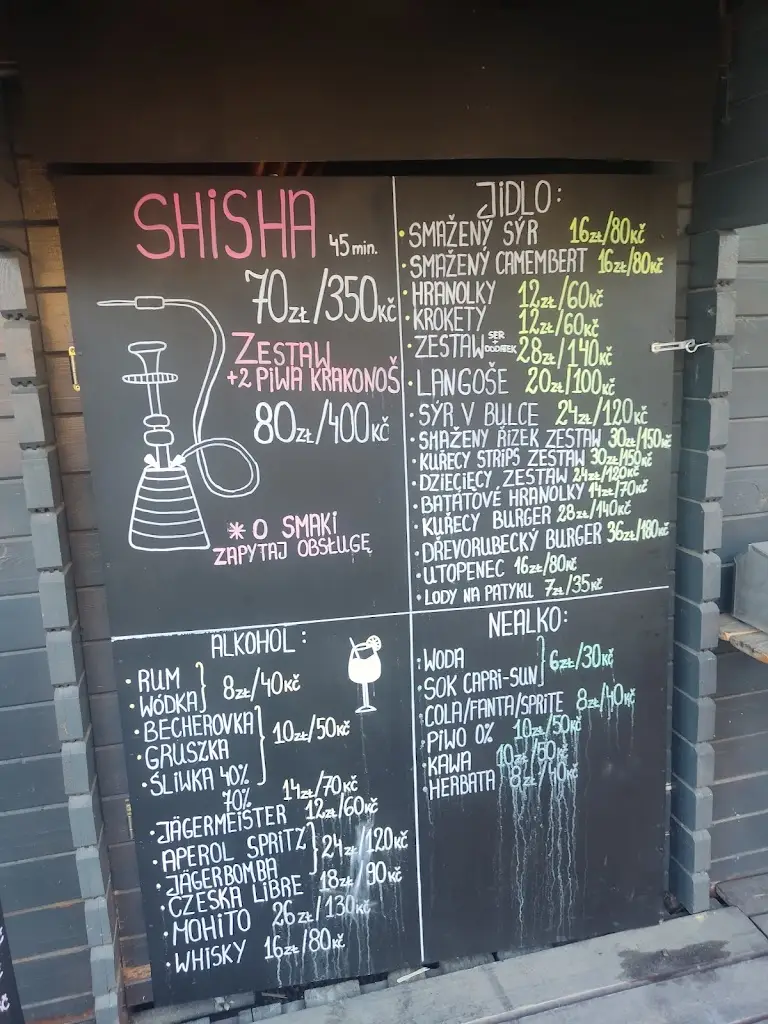 SHiSHA 45 min.
70zł/350Kč
ZESTAW
+2 PIWA KRAKONOŠ
80zł/400Kč
* O SMAKI
ZAPYTAJ OBSŁUGĘ
JiDLO:
• SMAŽENÝ SÝR 16zł/80Kč
• SMAŽENÝ CAMEMBERT 16zł/80Kč
• HRANOLKY 12zł/60Kč
• KROKETY 12zł/60Kč
• ZESTAW SER + DODATEK 28zł/140Kč
• LANGOŠE 20zł/100Kč
• SÝR V BULCE 24zł/120Kč
• SMAŽENY ŘÍZEK ZESTAW 30zł/150Kč
• KUŘECY STRIPS ZESTAW 30zł/150Kč
• DZIECIĘCY ZESTAW 24zł/120Kč
• BATÁTOVÉ HRANOLKY 14zł/70Kč
• KUŘECY BURGER 28zł/140Kč
• DŘEVORUBECKÝ BURGER 36zł/180Kč
• UTOPENEC 16zł/80Kč
• LODY NA PATYKU 7zł/35Kč
ALKOHOL:
• RUM
• WÓDKA } 8zł/40Kč
• BECHEROVKA
• GRUSZKA } 10zł/50Kč
• ŚLIWKA 40%
70% 14zł/70Kč
• JÄGERMEISTER 12zł/60Kč
• APEROL SPRITZ
• JÄGERBOMBA } 24zł/120Kč
• CZESKA LIBRE 18zł/90Kč
• MOHITO 26zł/130Kč
• WHISKY 16zł/80Kč
NEALKO:
• WODA
• SOK CAPRI-SUN } 6zł/30Kč
• COLA/FANTA/SPRITE 8zł/40Kč
• PIWO 0% 10zł/50Kč
• KAWA 10zł/50Kč
• HERBATA 8zł/40Kč